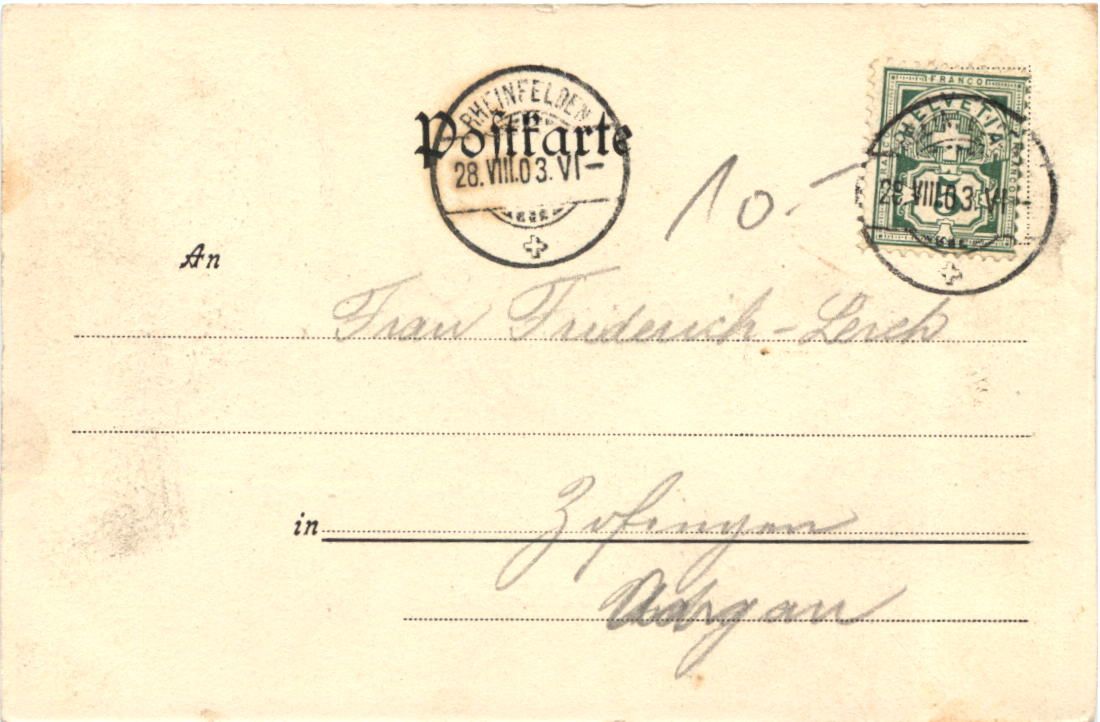 Postkarte
RHEINFELDEN
28.VIII.03.VI—
10.—
FRANCO
HELVETIA
FRANCO
5
28.VIII.03.VI—
An
Frau Friderich-Lerch
in Zofingen
Aargau